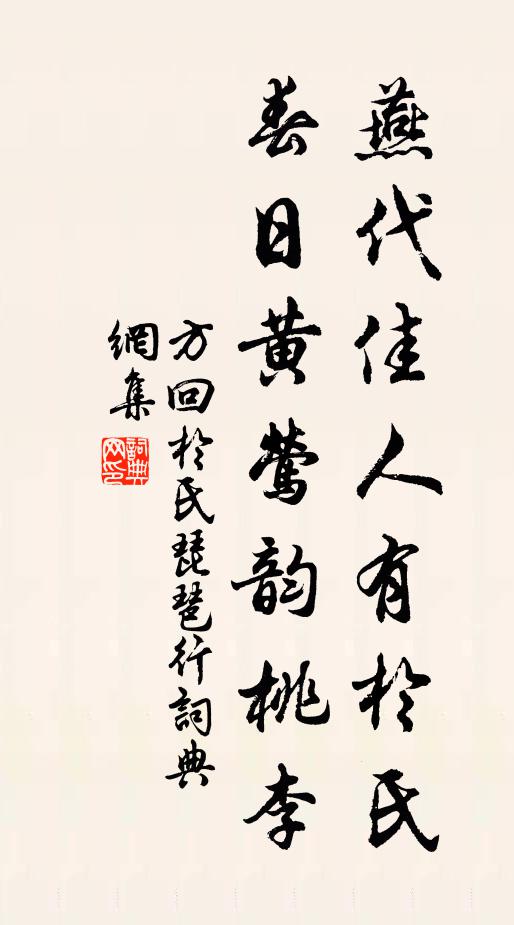 燕代佳人有於氏
春日黄鶯韵桃李
方回於氏琵琶行詞典
網集
詞典網印